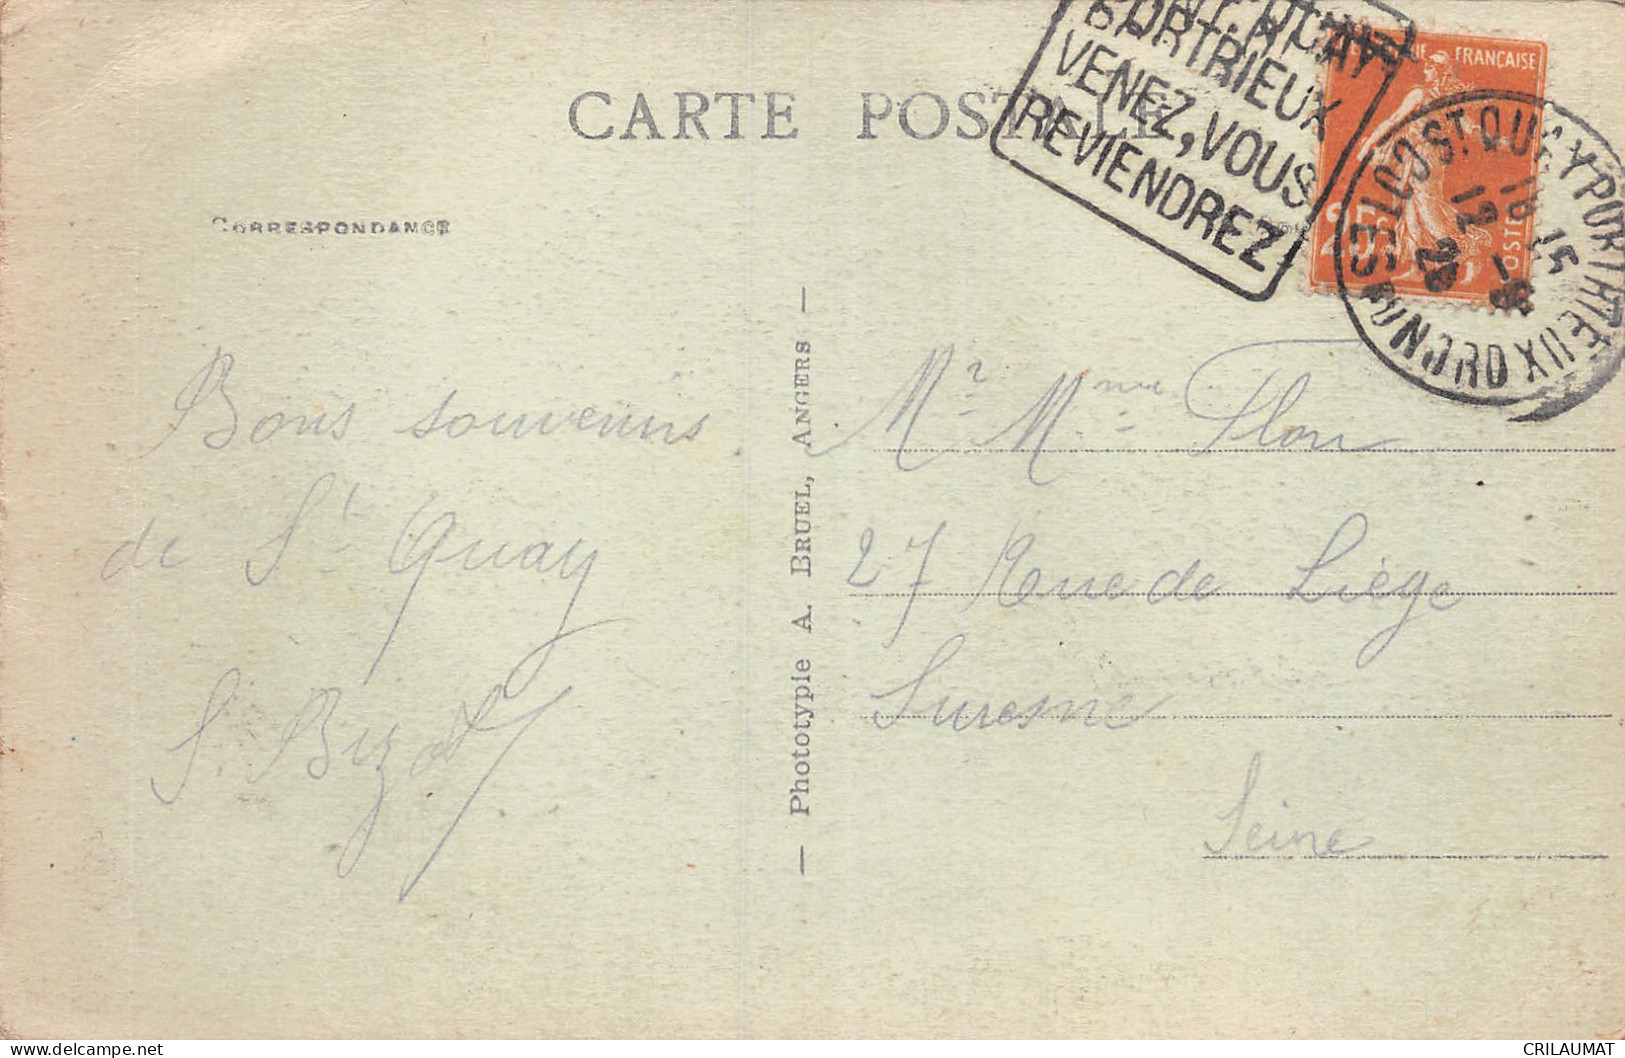 CARTE POSTALE
PORTRIEUX
VENEZ, VOUS
REVIENDREZ
FRANÇAISE
25
POSTES
ST QUAY PORTRIEUX
COTES DU NORD
12 -8
28
CORRESPONDANCE
Bons souvenirs
de St Quay
Phototypie A. BRUEL, ANGERS
Mr Mme Flou
27 Rue de Liège
Suresne
Seine
CRILAUMAT